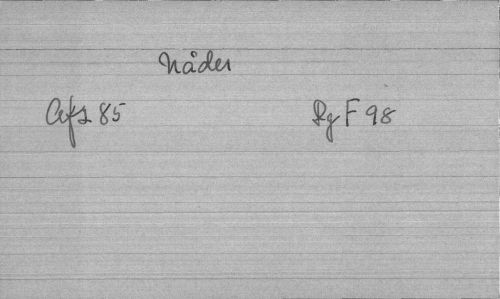 Nåden
Afs 85 Rg F 98